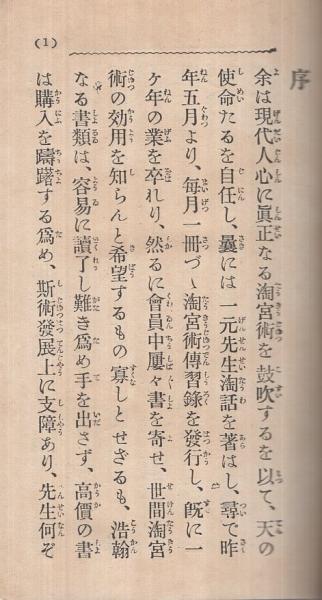 (1)
序
余は現代人心に眞正なる淘宮術を鼓吹するを以て、天の
使命たるを自任し、曩には一元先生淘話を著はし、尋で昨
年五月より、毎月一冊づゝ淘宮術傳習錄を發行し、既に一
ヶ年の業を卒れり、然るに會員中屢々書を寄せ、世間淘宮
術の効用を知らんと希望するもの寡しとせざるも、浩翰
なる書類は、容易に讀了し難き爲め手を出さず、高價の書
は購入を躊躇する爲め、斯術發展上に支障あり、先生何ぞ